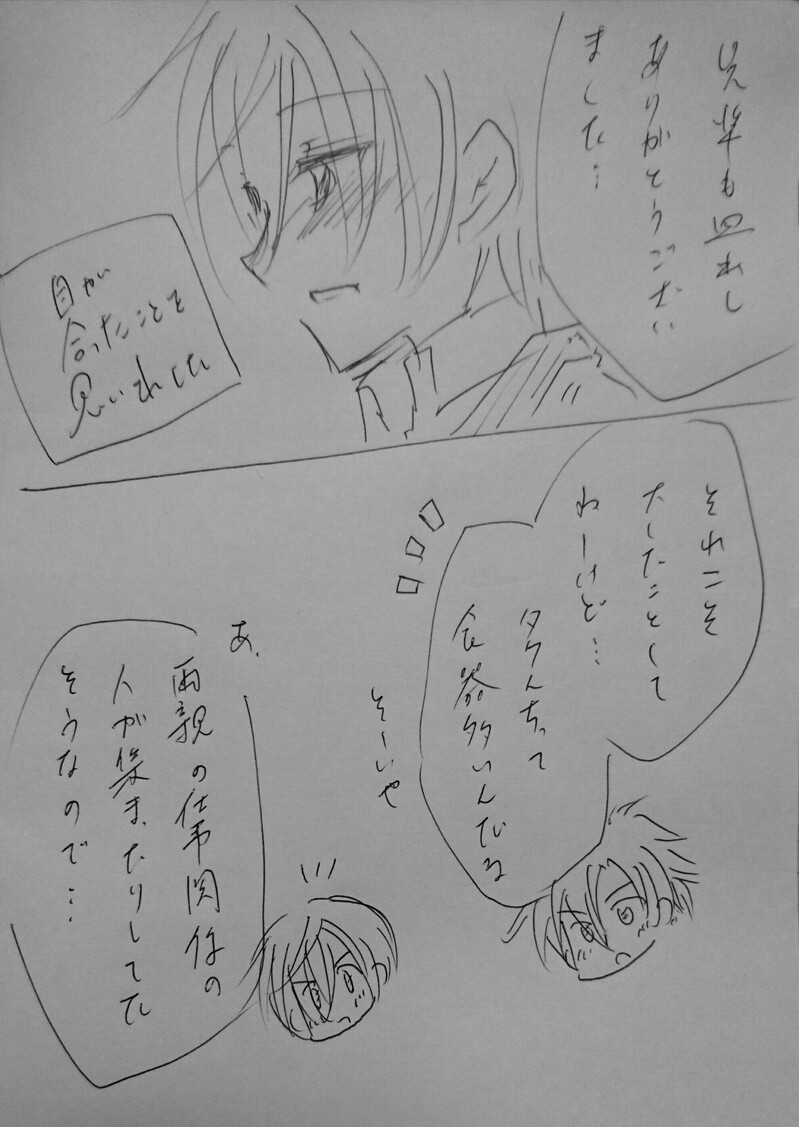 先輩も皿出し
ありがとうござい
ました…
目が
合ったことを
思い出した
それこそ
大したことして
ねーけど…
タクんちって
食器多いんだな
そーいや
あ、
両親の仕事関係の
人が集まったりしてた
そうなので…